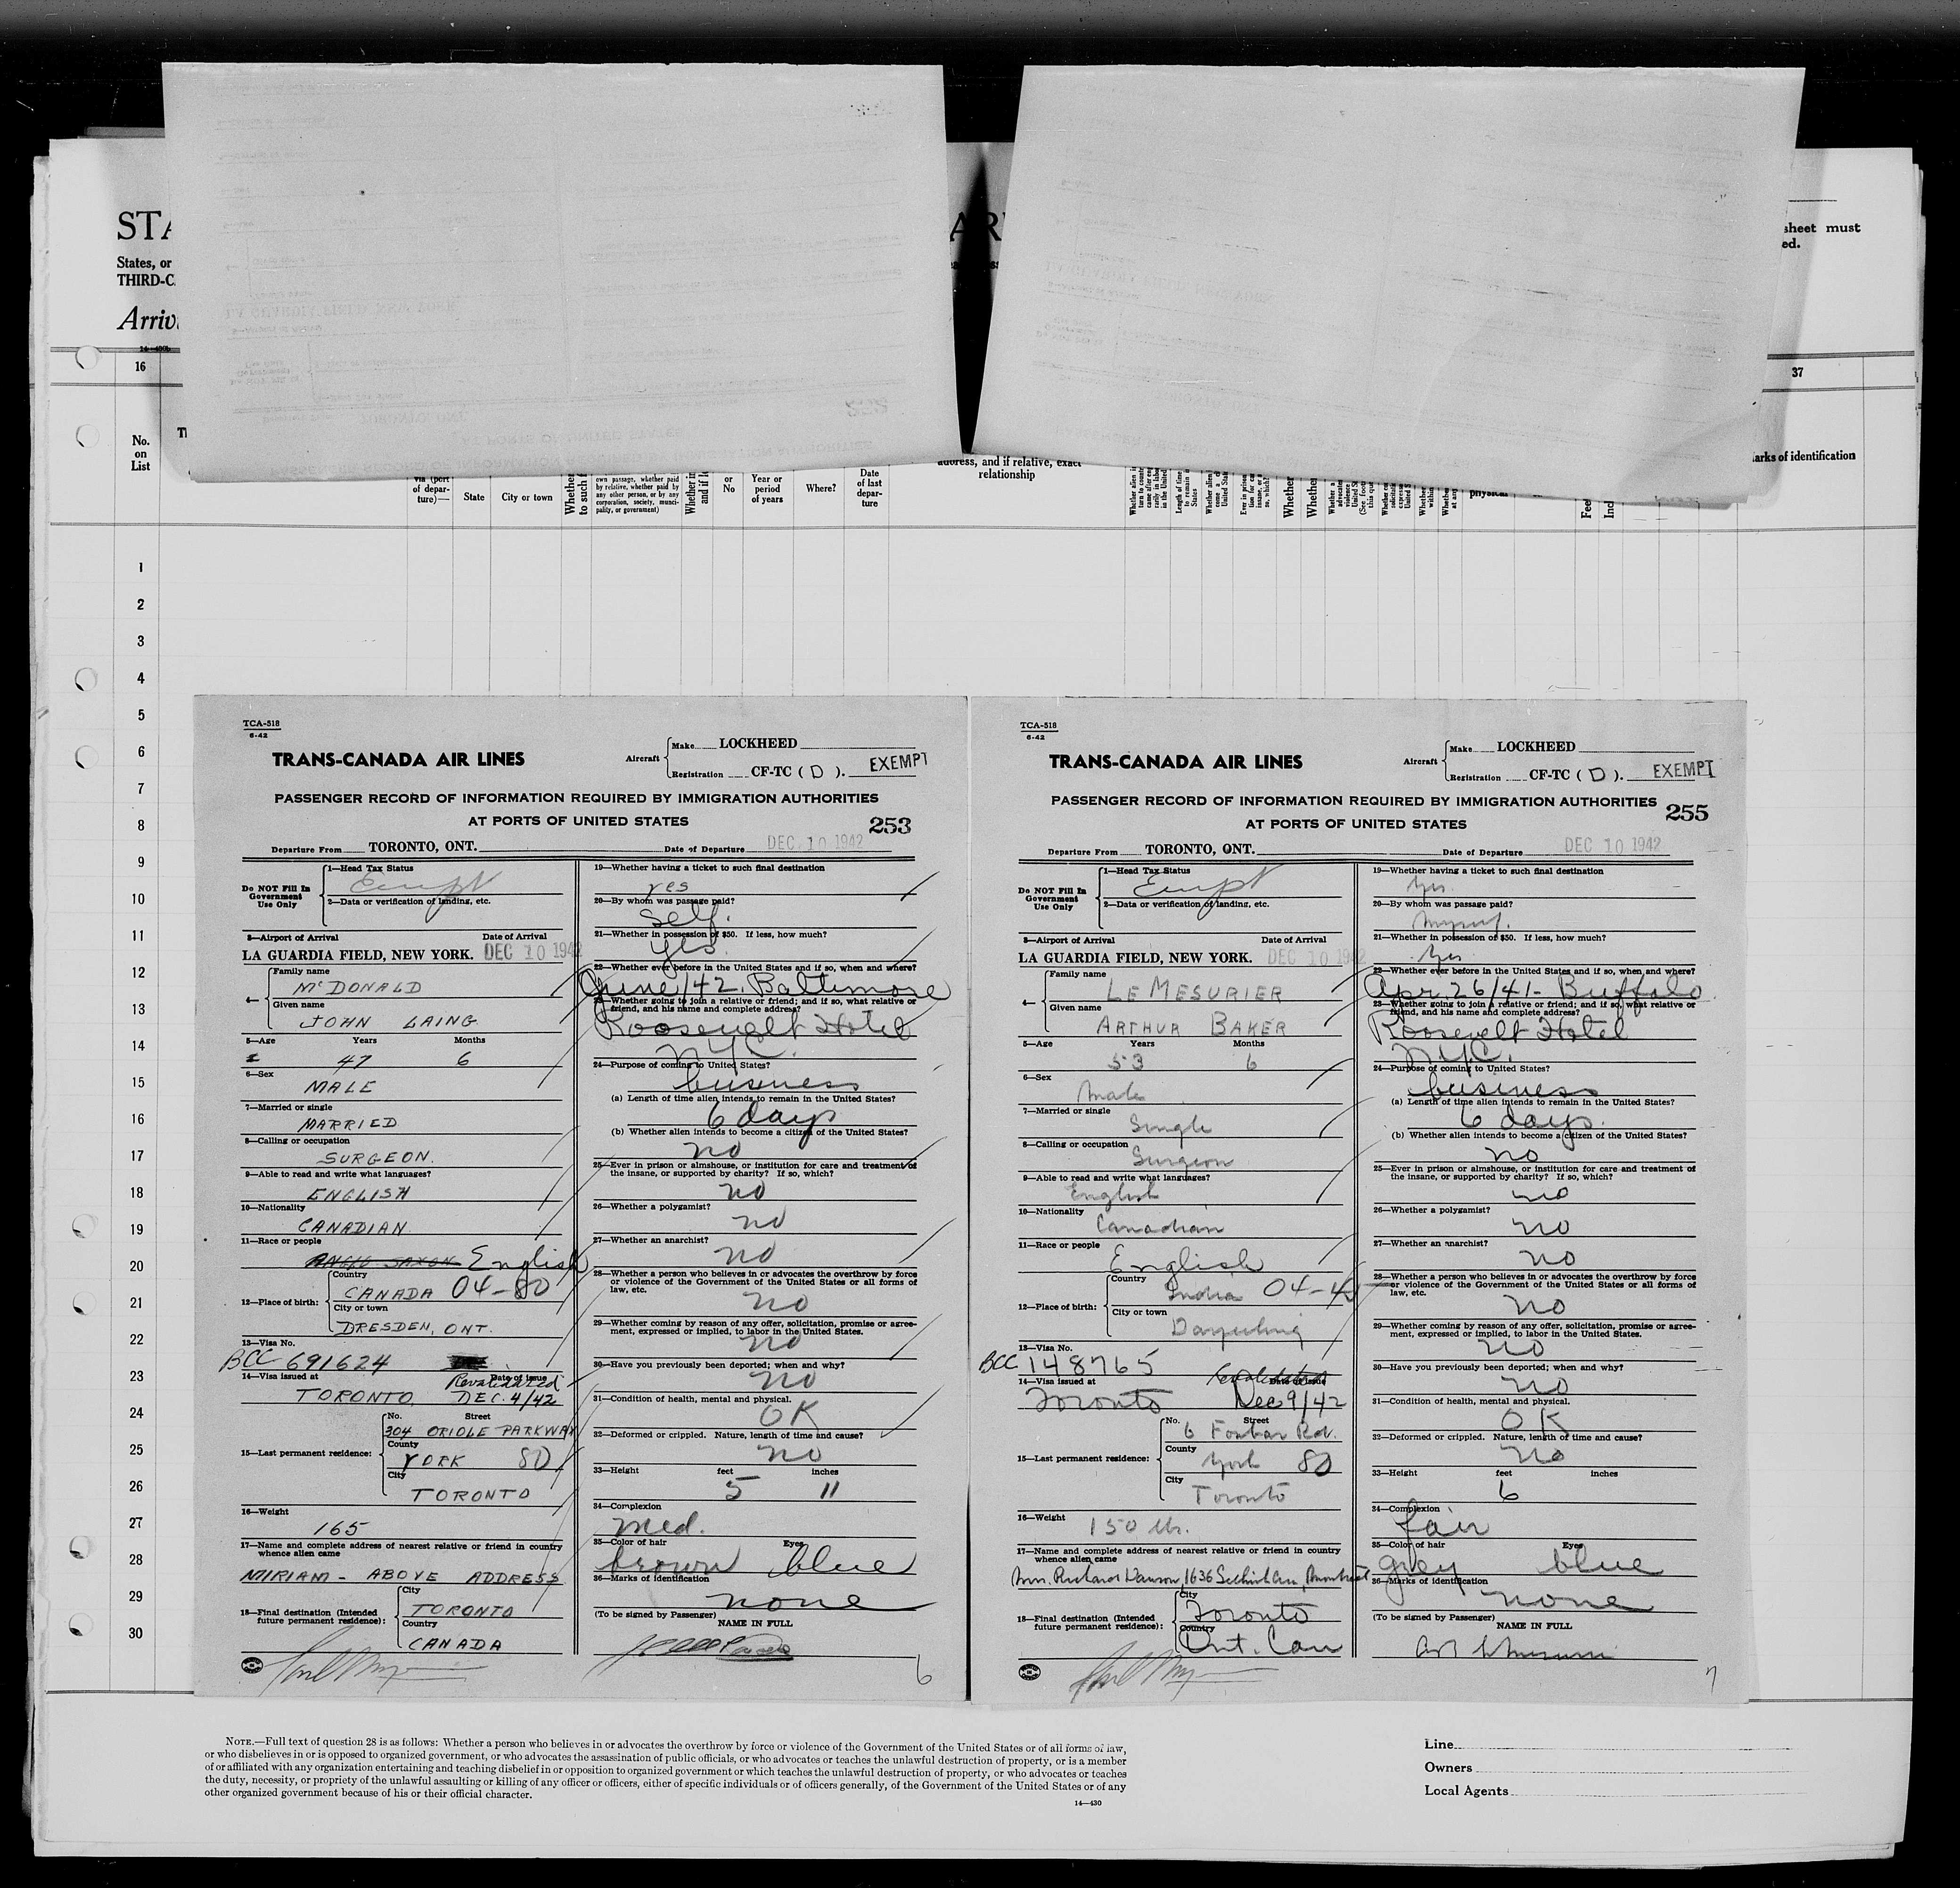 STA
States, or
THIRD-C
Arriv
14—430b
AR
sheet must
ed.
16
37
No.
on
List
via (port
of depar-
ture)—
State
City or town
Whether
to such f
own passage, whether paid
by relative, whether paid by
any other person, or by any
corporation, society, munici-
pality, or government)
or
No
Year or
period
of years
Where?
Date
of last
depar-
ture
address, and if relative, exact
relationship
arks of identification
1
2
3
4
5
6
7
8
9
10
11
12
13
14
15
16
17
18
19
20
21
22
23
24
25
26
27
28
29
30
TCA-518
6-42
TRANS-CANADA AIR LINES
Aircraft
Make LOCKHEED
Registration CF-TC ( D ). EXEMPT
PASSENGER RECORD OF INFORMATION REQUIRED BY IMMIGRATION AUTHORITIES
AT PORTS OF UNITED STATES
253
Departure From TORONTO, ONT. Date of Departure DEC 10 1942
Do NOT Fill In
Government
Use Only
1—Head Tax Status
Exempt
2—Data or verification of landing, etc.
3—Airport of Arrival Date of Arrival
LA GUARDIA FIELD, NEW YORK. DEC 10 1942
4—
Family name
McDONALD
Given name
JOHN LAING
5—Age Years Months
47 6
6—Sex
MALE
7—Married or single
MARRIED
8—Calling or occupation
SURGEON.
9—Able to read and write what languages?
ENGLISH
10—Nationality
CANADIAN.
11—Race or people
ANGLO SAXON English
12—Place of birth:
Country
CANADA 04-80
City or town
DRESDEN, ONT.
13—Visa No.
BCC 691624
14—Visa issued at Date of issue
Revalidated
TORONTO DEC. 4/42
15—Last permanent residence:
No. Street
304 ORIOLE PARKWAY
County
YORK 80
City
TORONTO
16—Weight
165
17—Name and complete address of nearest relative or friend in country
whence alien came
MIRIAM - ABOVE ADDRESS
18—Final destination (Intended
future permanent residence):
City
TORONTO
Country
CANADA
19—Whether having a ticket to such final destination
yes
20—By whom was passage paid?
Self.
21—Whether in possession of $50. If less, how much?
yes
22—Whether ever before in the United States and if so, when and where?
June/42. Baltimore
23—Whether going to join a relative or friend; and if so, what relative or
friend, and his name and complete address?
Roosevelt Hotel
NYC.
24—Purpose of coming to United States?
business
(a) Length of time alien intends to remain in the United States?
6 days
(b) Whether alien intends to become a citizen of the United States?
no
25—Ever in prison or almshouse, or institution for care and treatment of
the insane, or supported by charity? If so, which?
no
26—Whether a polygamist?
no
27—Whether an anarchist?
no
28—Whether a person who believes in or advocates the overthrow by force
or violence of the Government of the United States or all forms of
law, etc.
no
29—Whether coming by reason of any offer, solicitation, promise or agree-
ment, expressed or implied, to labor in the United States.
no
30—Have you previously been deported; when and why?
no
31—Condition of health, mental and physical.
OK
32—Deformed or crippled. Nature, length of time and cause?
no
33—Height feet inches
5 11
34—Complexion
med.
35—Color of hair Eyes
brown blue
36—Marks of identification
none
(To be signed by Passenger)
NAME IN FULL
6
TCA-518
6-42
TRANS-CANADA AIR LINES
Aircraft
Make LOCKHEED
Registration CF-TC ( D ). EXEMPT
PASSENGER RECORD OF INFORMATION REQUIRED BY IMMIGRATION AUTHORITIES
AT PORTS OF UNITED STATES
255
Departure From TORONTO, ONT. Date of Departure DEC 10 1942
Do NOT Fill In
Government
Use Only
1—Head Tax Status
Exempt
2—Data or verification of landing, etc.
3—Airport of Arrival Date of Arrival
LA GUARDIA FIELD, NEW YORK. DEC 10 1942
4—
Family name
LE MESURIER
Given name
ARTHUR BAKER
5—Age Years Months
53 6
6—Sex
Male
7—Married or single
Single
8—Calling or occupation
Surgeon
9—Able to read and write what languages?
English
10—Nationality
Canadian
11—Race or people
English
12—Place of birth:
Country
India 04-4
City or town
Darjeeling
13—Visa No.
BCC 148765
14—Visa issued at Date of issue
Revalidated
Toronto Dec 9/42
15—Last permanent residence:
No. Street
6 Foxbar Rd.
County
York 80
City
Toronto
16—Weight
150 lb.
17—Name and complete address of nearest relative or friend in country
whence alien came
Mrs. Richard Dawson, 1636 Selkirk Ave, Montreal
18—Final destination (Intended
future permanent residence):
City
Toronto
Country
Ont. Can
19—Whether having a ticket to such final destination
Yes.
20—By whom was passage paid?
Myself.
21—Whether in possession of $50. If less, how much?
Yes
22—Whether ever before in the United States and if so, when and where?
Apr. 26/41 - Buffalo
23—Whether going to join a relative or friend; and if so, what relative or
friend, and his name and complete address?
Roosevelt Hotel
N.Y.C.
24—Purpose of coming to United States?
business
(a) Length of time alien intends to remain in the United States?
6 days.
(b) Whether alien intends to become a citizen of the United States?
no
25—Ever in prison or almshouse, or institution for care and treatment of
the insane, or supported by charity? If so, which?
no
26—Whether a polygamist?
no
27—Whether an anarchist?
no
28—Whether a person who believes in or advocates the overthrow by force
or violence of the Government of the United States or all forms of
law, etc.
no
29—Whether coming by reason of any offer, solicitation, promise or agree-
ment, expressed or implied, to labor in the United States.
no
30—Have you previously been deported; when and why?
no
31—Condition of health, mental and physical.
OK
32—Deformed or crippled. Nature, length of time and cause?
no
33—Height feet inches
6
34—Complexion
fair
35—Color of hair Eyes
grey blue
36—Marks of identification
none
(To be signed by Passenger)
NAME IN FULL
7
NOTE.—Full text of question 28 is as follows: Whether a person who believes in or advocates the overthrow by force or violence of the Government of the United States or of all forms of law,
or who disbelieves in or is opposed to organized government, or who advocates the assassination of public officials, or who advocates or teaches the unlawful destruction of property, or is a member
of or affiliated with any organization entertaining and teaching disbelief in or opposition to organized government or which teaches the unlawful destruction of property, or who advocates or teaches
the duty, necessity, or propriety of the unlawful assaulting or killing of any officer or officers, either of specific individuals or of officers generally, of the Government of the United States or of any
other organized government because of his or their official character.
14—430
Line
Owners
Local Agents